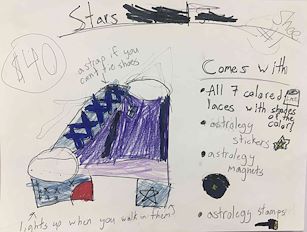 Stars
Shoe
$40
a strap if you
can't tie shoes
Comes with
• All 7 colored
laces with shades
of the color!
• astrolegy
stickers
• astrolegy
magnets
• astrolegy stamps
lights up when you walk in them?